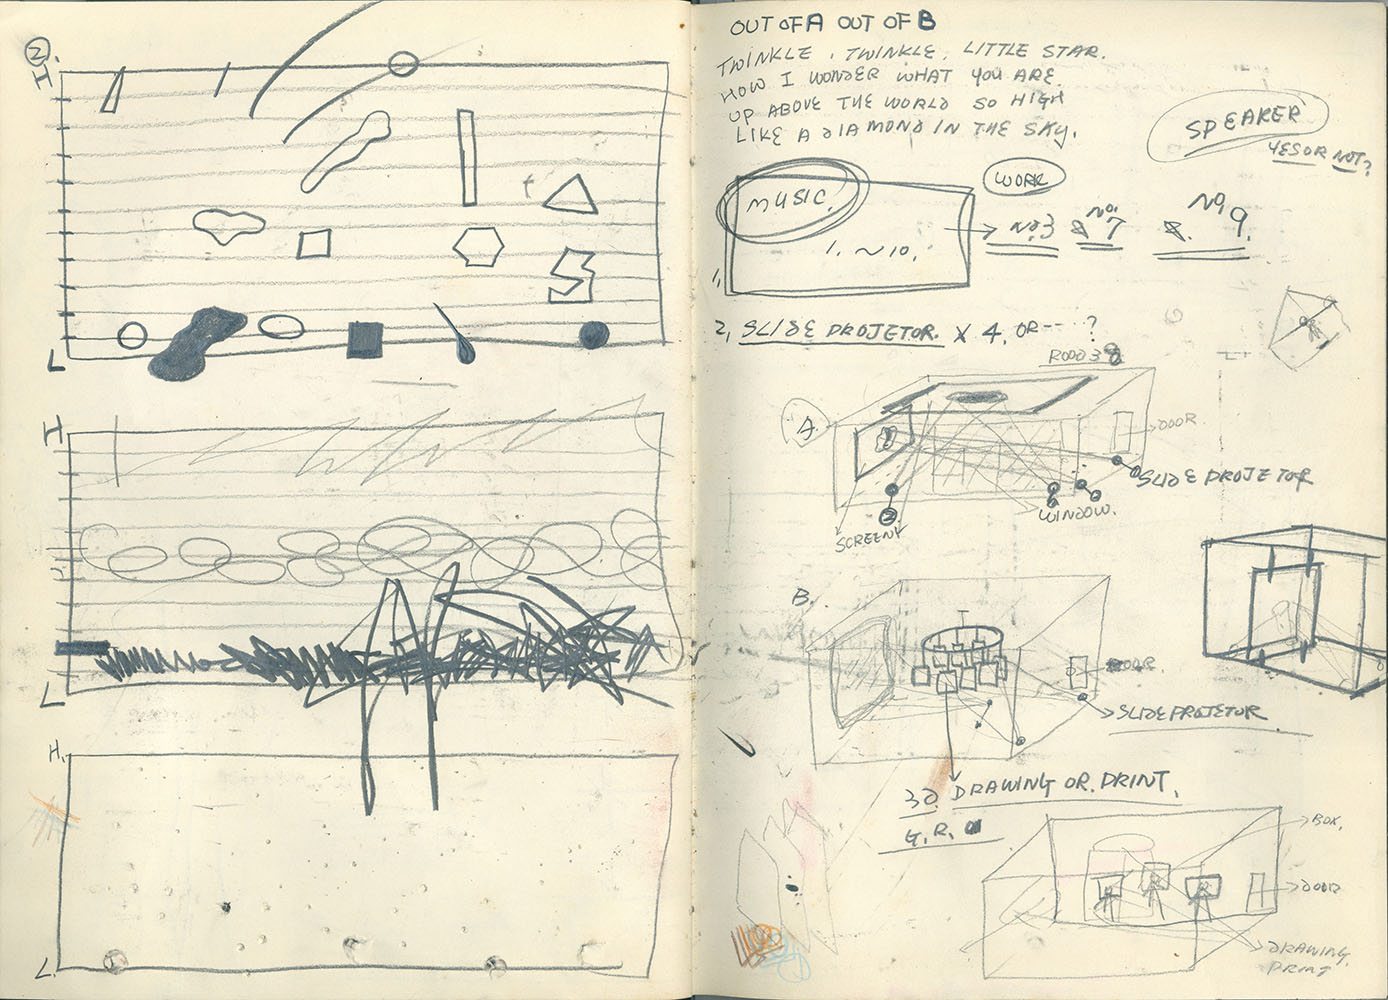 2.
H
L
H
L
H.
L.
OUT OF A OUT OF B
TWINKLE, TWINKLE, LITTLE STAR.
HOW I WONDER WHAT YOU ARE.
UP ABOVE THE WORLD SO HIGH
LIKE A DIAMOND IN THE SKY.
SPEAKER
YES OR NOT?
WORK
MUSIC.
1. ~10.
NO.3 & NO.7 &. NO.9.
1,
2, SLIDE PROJETOR. X 4. OR--- ?
A.
DOOR.
SLIDE PROJETOR
WINDOW.
SCREEN
B.
DOOR.
SLIDE PROJETOR
DRAWING OR PRINT.
G.R.
BOX.
DOOR
DRAWING.
PRINT